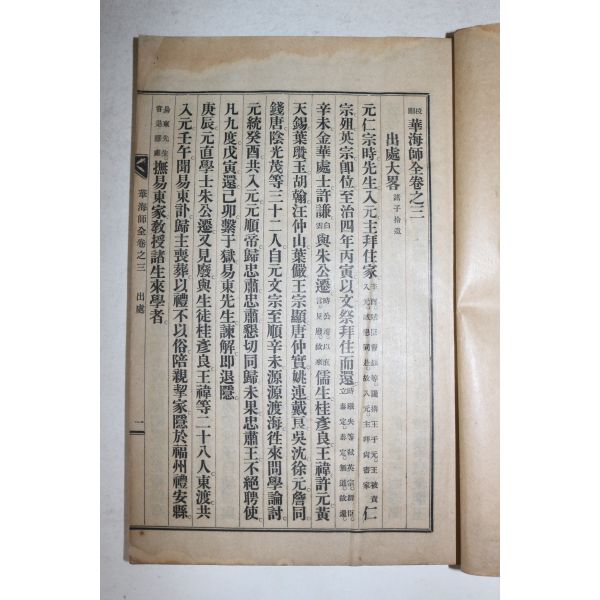 校閱 華海師全卷之三
出處大畧 諸子拾遺
元仁宗時先生入元主拜住家 仁
宗殂英宗卽位至治四年丙寅以文祭拜住而還
辛未金華處士許謙 與朱公遷 儒生桂彥良王禕許元黃
天錫葉瓚玉胡翰汪仲山葉儼王宗顯唐仲實姚連戴 吳沈徐元詹同
錢唐陰光茂等三十二人自元文宗至順辛未源源渡海徃來問學論討
元統癸酉共入元元順帝歸忠肅忠肅懇切同歸未果忠肅王不絕聘使
凡九度戊寅還己卯繫于獄易東先生諫解即退隱
庚辰元直學士朱公遷又見廢與生徒桂彥良王禕等二十八人東渡共
入元壬午聞易東訃歸主喪葬以禮不以俗陪親挈家隱於福州禮安縣
撫易東家教授諸生來學者
華海師全卷之三 出處
一